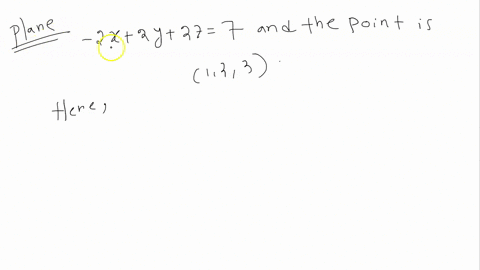 Plane -2x+2y+2z=7 and the point is
(1,2,3)
Here,